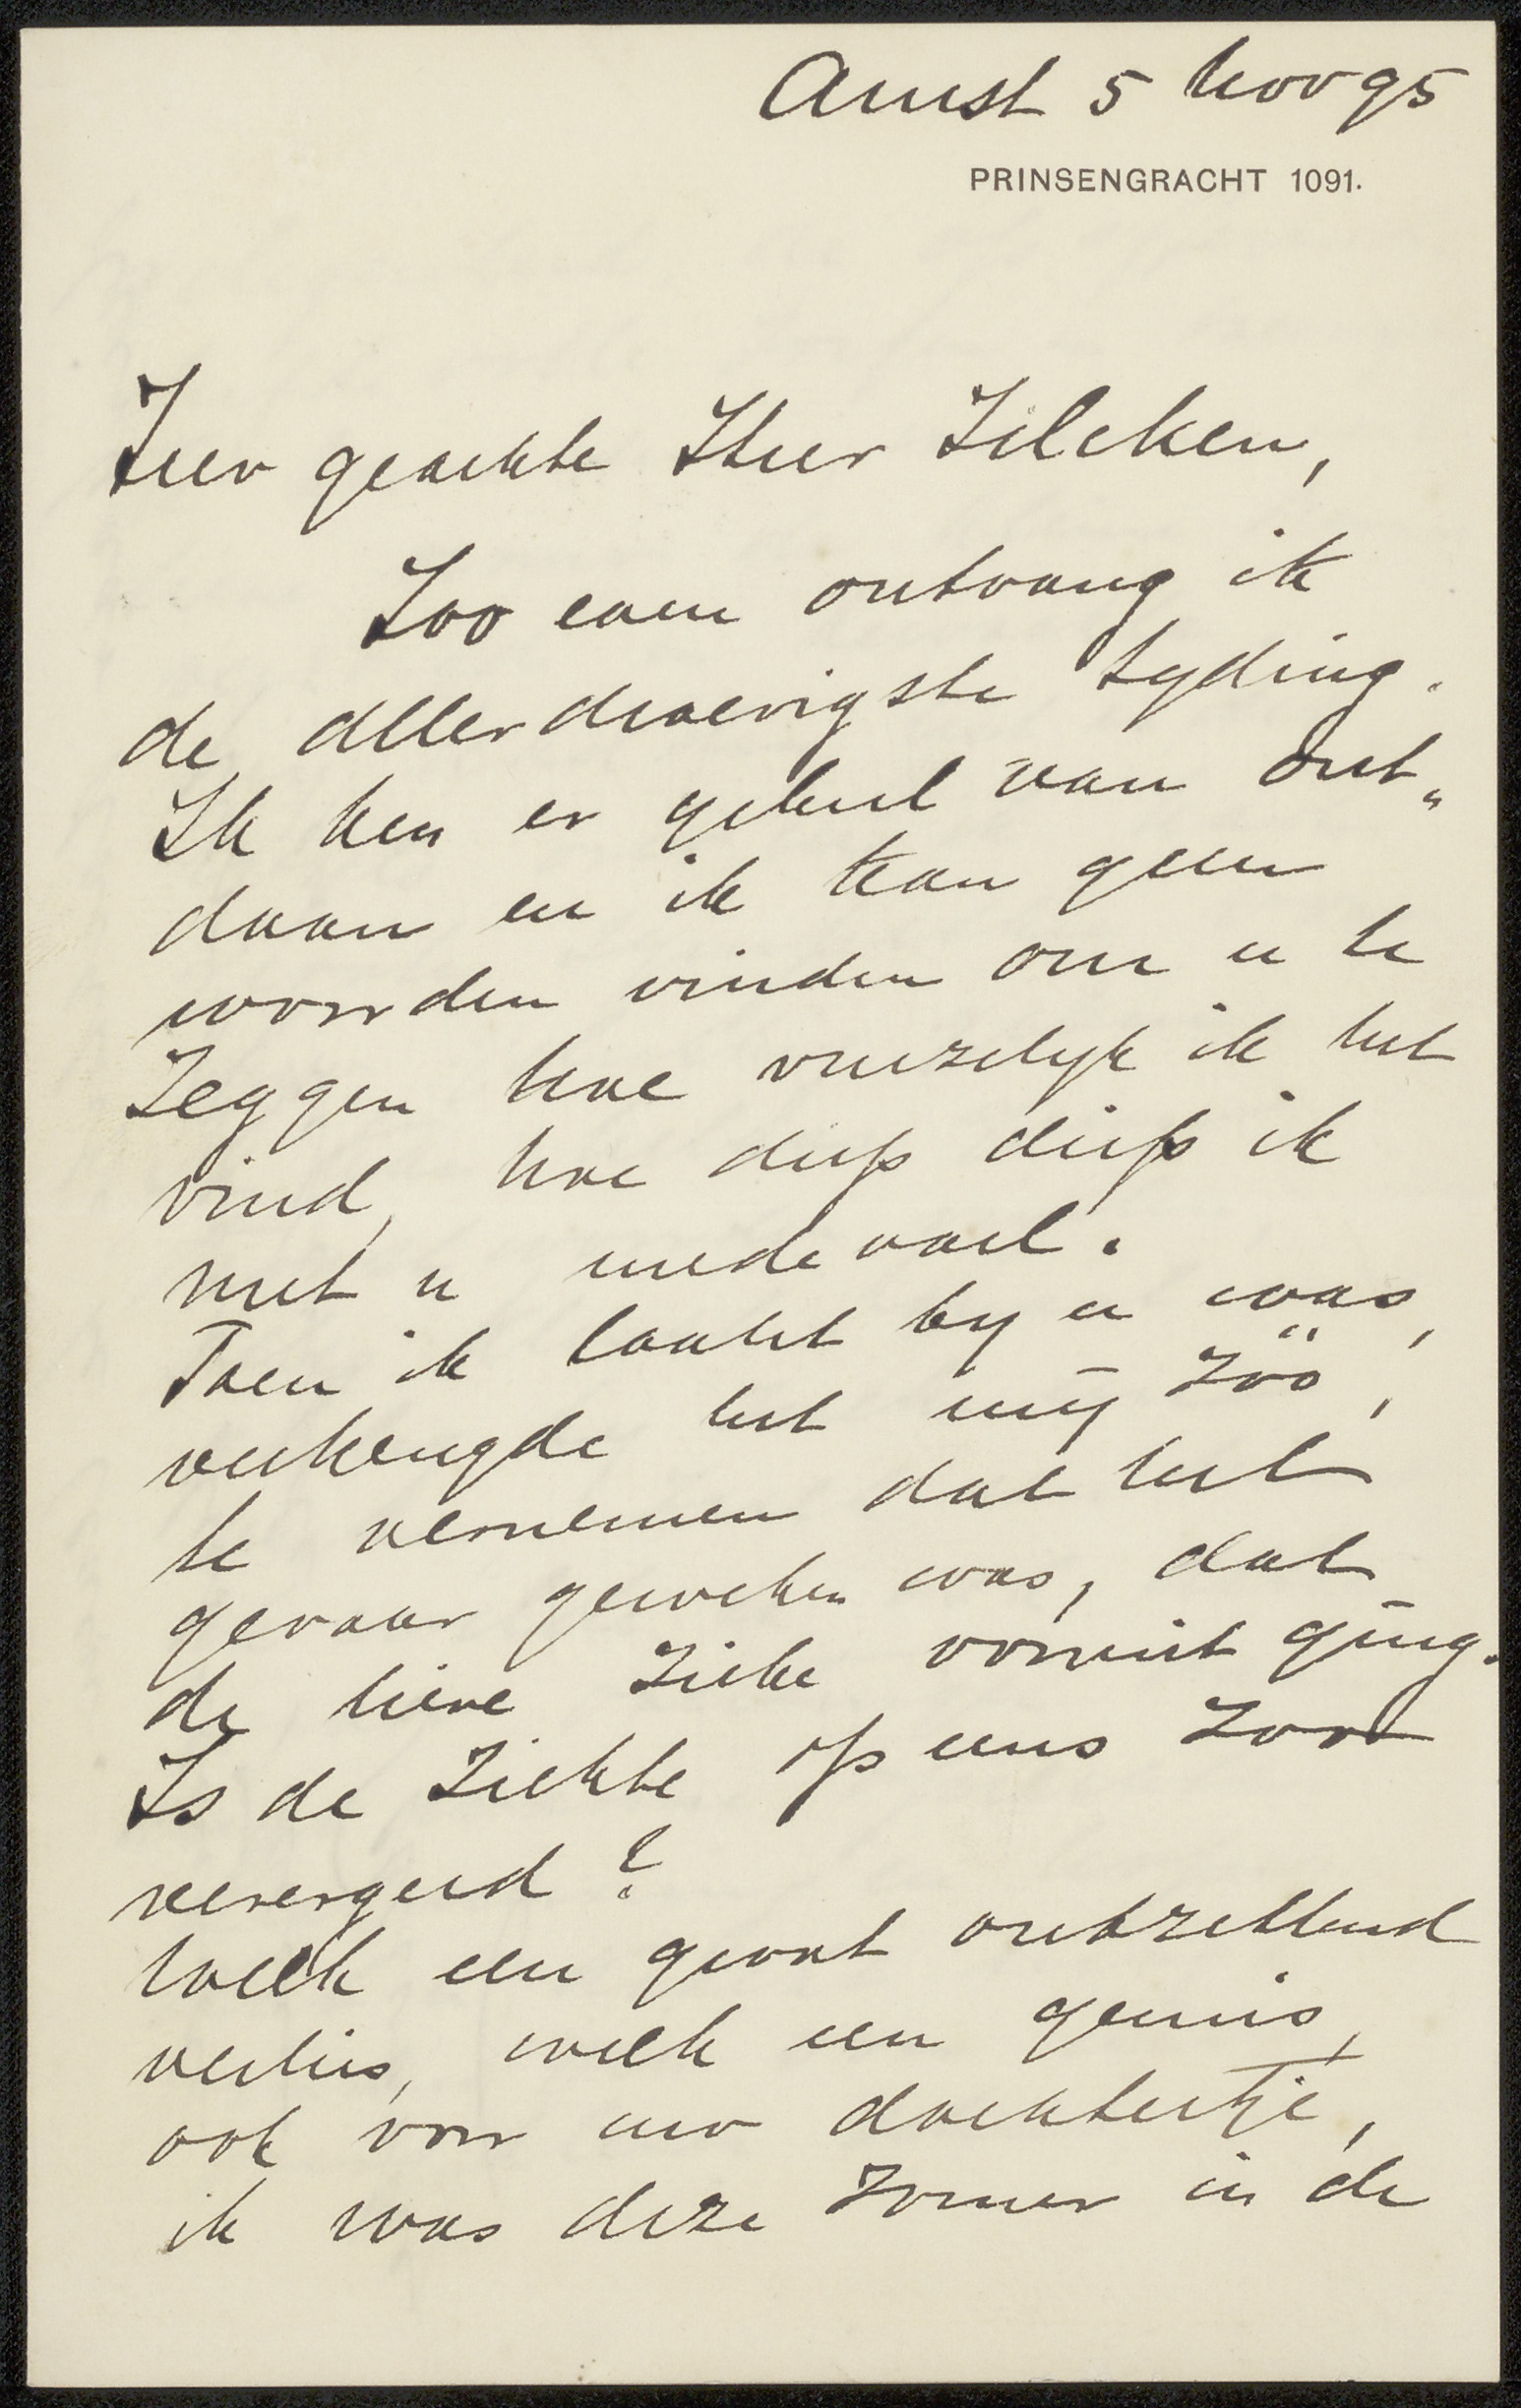 Amst 5 Nov 95
PRINSENGRACHT 1091.
Zeer geachte Heer Zilcken,
Zoo even ontvang ik
de allerdroevigste tyding.
Ik ben er geheel van ont„
daan en ik kan geen
woorden vinden om u te
zeggen hoe vreeselyk ik het
vind, hoe diep diep ik
met u medevoel.
Toen ik laatst by u was,
verheugde het mij zöö,
te vernemen dat het
gevaar geweken was, dat
de lieve zieke vooruit ging.
Is de ziekte op eens zoo
verergerd?
Welk een groot ontzettend
verlies, welk een gemis,
ook voor uw dochtertje,
ik was deze zomer in de